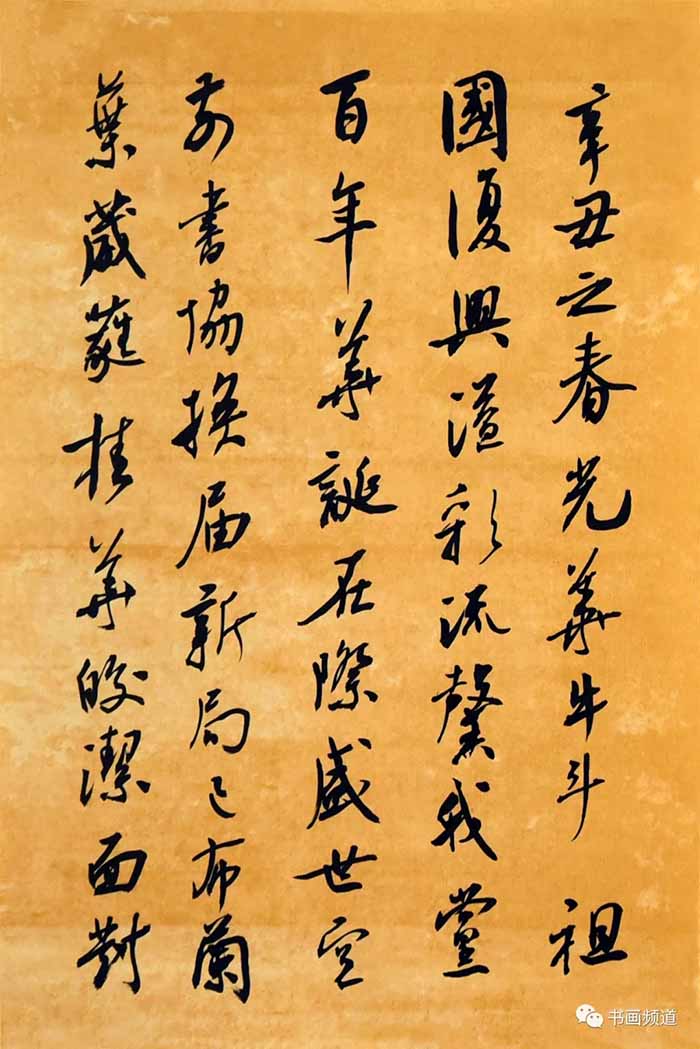 辛丑之春光華牛斗 祖
國復興溢彩流馨我黨
百年華誕在際盛世空
前書協換届新局已布蘭
葉葳蕤桂華皎潔面對
书画频道